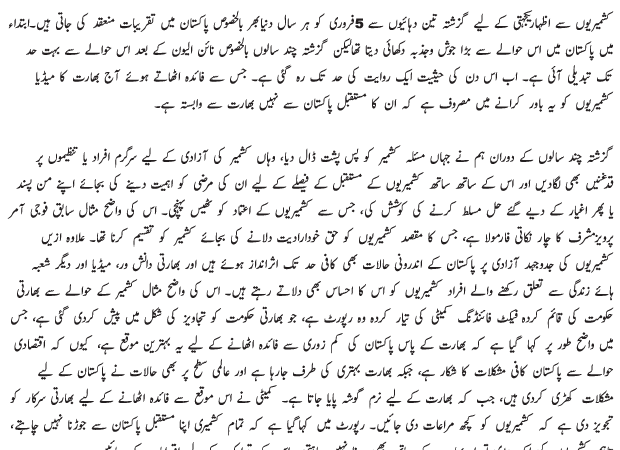 کشمیریوں سے اظہاریکجہتی کے لیے گزشتہ تین دہائیوں سے 5فروری کو ہر سال دنیا بھر بالخصوص پاکستان میں تقریبات منعقد کی جاتی ہیں۔ابتداء
میں پاکستان میں اس حوالے سے بڑا جوش وجذبہ دکھائی دیتا تھالیکن گزشتہ چند سالوں بالخصوص نائن الیون کے بعد اس حوالے سے بہت حد
تک تبدیلی آئی ہے۔ اب اس دن کی حیثیت ایک روایت کی حد تک رہ گئی ہے۔ جس سے فائدہ اٹھاتے ہوئے آج بھارت کا میڈیا
کشمیریوں کو یہ باور کرانے میں مصروف ہے کہ ان کا مستقبل پاکستان سے نہیں بھارت سے وابستہ ہے۔
گزشتہ چند سالوں کے دوران ہم نے جہاں مسئلہ کشمیر کو پس پشت ڈال دیا، وہاں کشمیر کی آزادی کے لیے سرگرم افراد یا تنظیموں پر
قدغنیں بھی لگادیں اور اس کے ساتھ ساتھ کشمیریوں کے مستقبل کے فیصلے کے لیے ان کی مرضی کو اہمیت دینے کی بجائے اپنے من پسند
یا پھر اغیار کے دیے گئے حل مسلط کرنے کی کوشش کی، جس سے کشمیریوں کے اعتماد کو ٹھیس پہنچی۔ اس کی واضح مثال سابق فوجی آمر
پرویزمشرف کا چار نکاتی فارمولا ہے، جس کا مقصد کشمیریوں کو حق خودارادیت دلانے کی بجائے کشمیر کو تقسیم کرنا تھا۔ علاوہ ازیں
کشمیریوں کی جدوجہد آزادی پر پاکستان کے اندرونی حالات بھی کافی حد تک اثرانداز ہوئے ہیں اور بھارتی دانش ور، میڈیا اور دیگر شعبہ
ہائے زندگی سے تعلق رکھنے والے افراد کشمیریوں کو اس کا احساس بھی دلاتے رہتے ہیں۔ اس کی واضح مثال کشمیر کے حوالے سے بھارتی
حکومت کی قائم کردہ فیکٹ فائنڈنگ کمیٹی کی تیار کردہ وہ رپورٹ ہے، جو بھارتی حکومت کو تجاویز کی شکل میں پیش کردی گئی ہے، جس
میں واضح طور پر کہا گیا ہے کہ بھارت کے پاس پاکستان کی کم زوری سے فائدہ اٹھانے کے لیے یہ بہترین موقع ہے، کیوں کہ اقتصادی
حوالے سے پاکستان کافی مشکلات کا شکار ہے، جبکہ بھارت بہتری کی طرف جارہا ہے اور عالمی سطح پر بھی حالات نے پاکستان کے لیے
مشکلات کھڑی کردی ہیں، جب کہ بھارت کے لیے نرم گوشہ پایا جاتا ہے۔ کمیٹی نے اس موقع سے فائدہ اٹھانے کے لیے بھارتی سرکار کو
تجویز دی ہے کہ کشمیریوں کو کچھ مراعات دی جائیں۔ رپورٹ میں کہاگیا ہے کہ تمام کشمیری اپنا مستقبل پاکستان سے جوڑنا نہیں چاہتے،